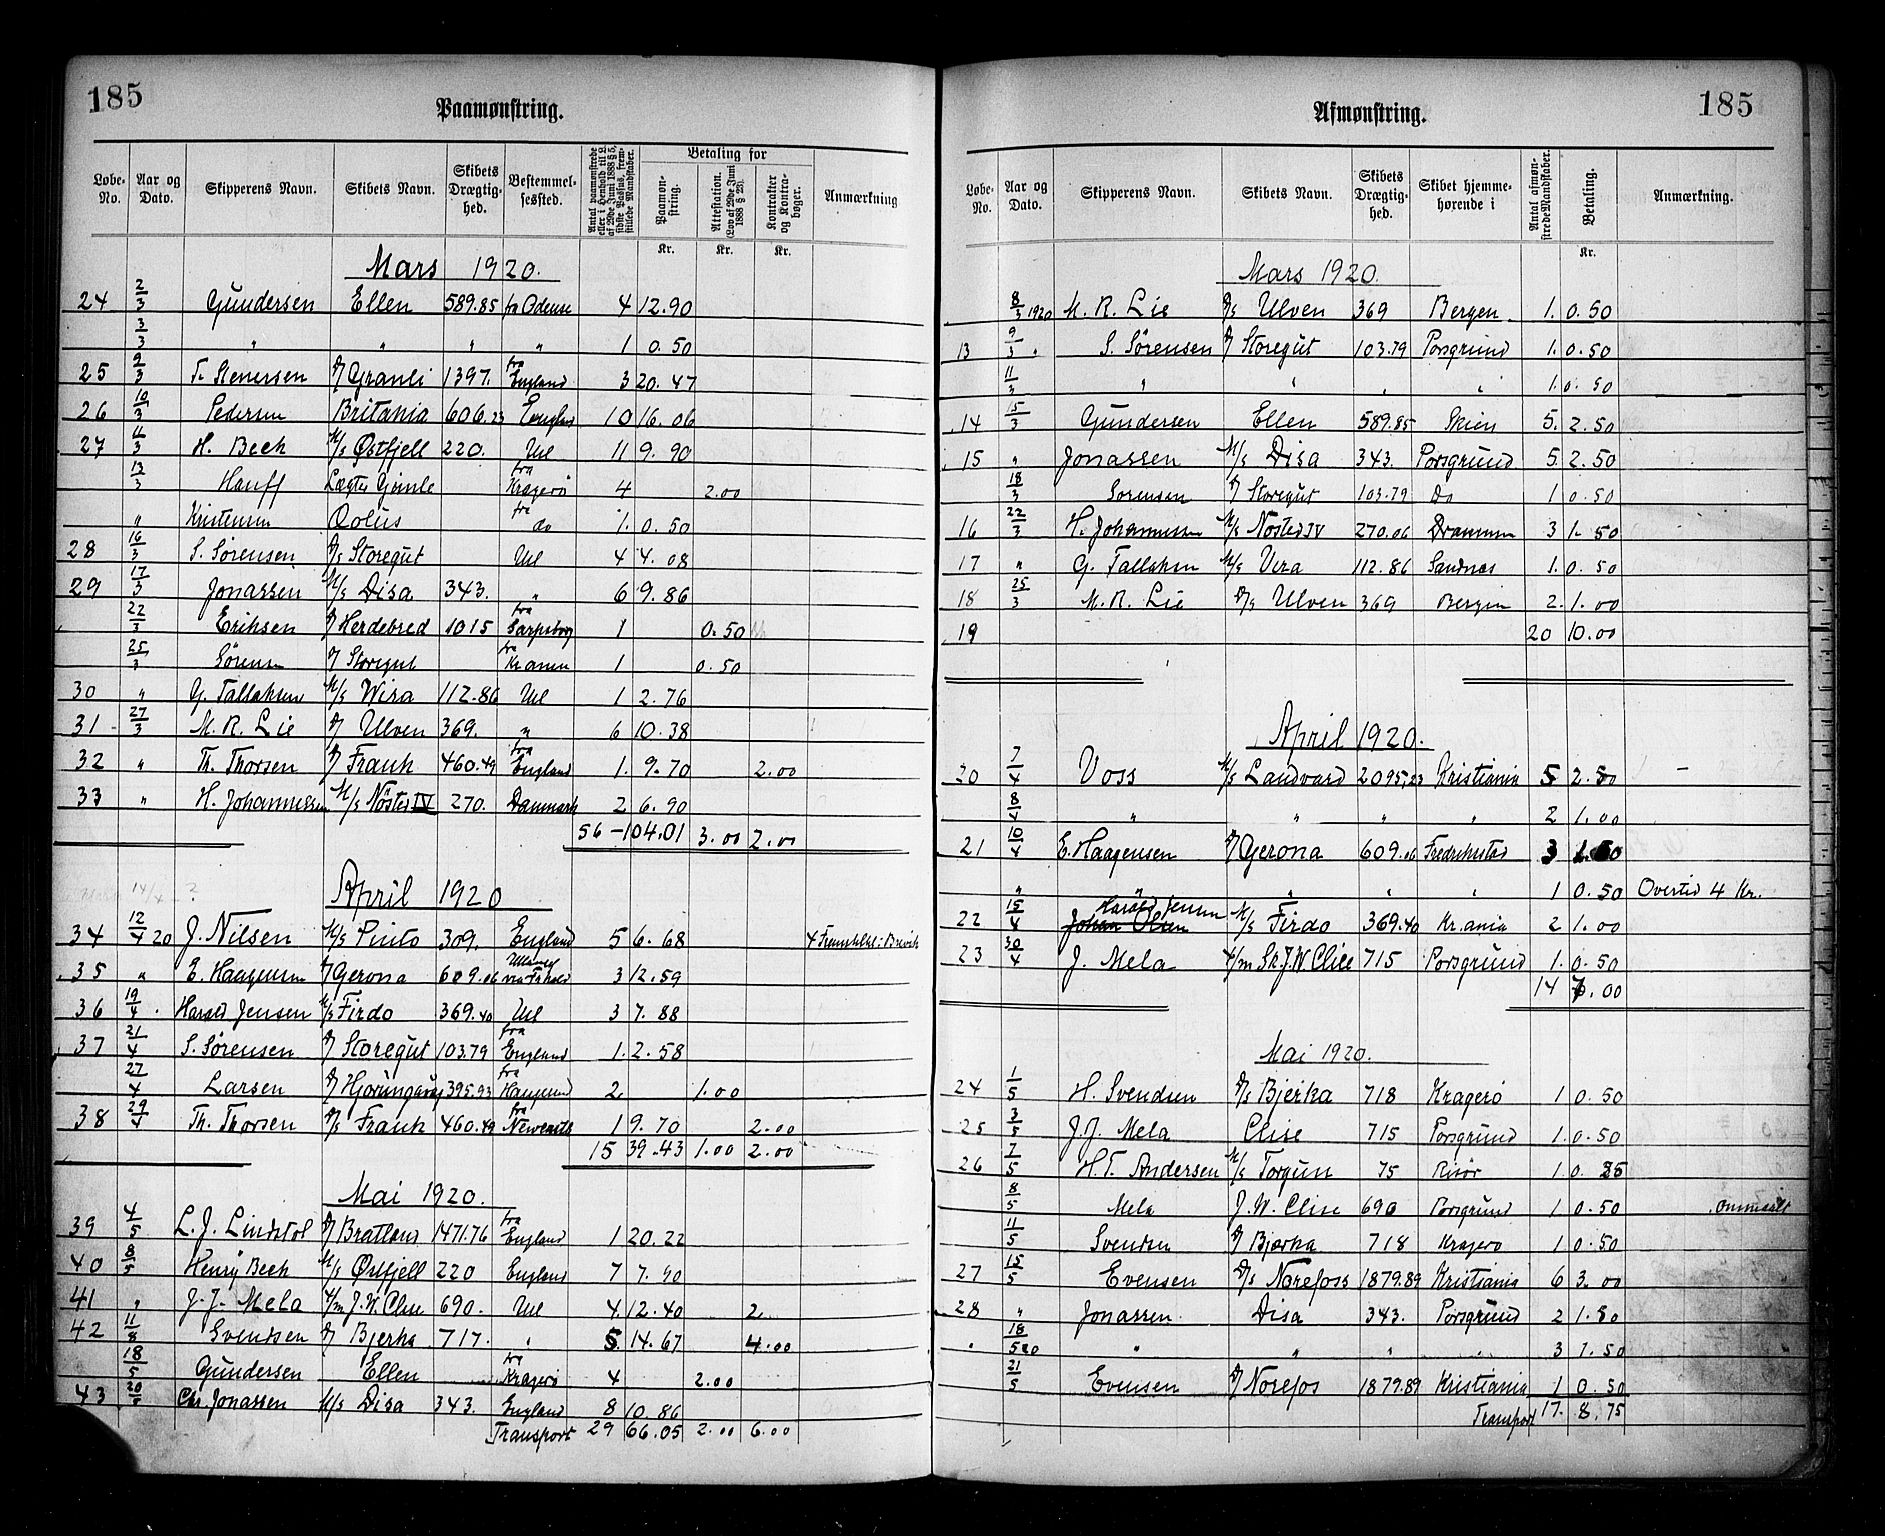 185
Paamønstring.
Løbe-No. Aar og Dato. Skipperens Navn. Skibets Navn. Skibets Drægtighed. Bestemmelsessted. Antal paamønstrede eller i Henhold til L. af 29de Juni 1888 § 5, sidste Passus, fremstillede Mandskaber. Betaling for Paamønstring. Attestation. (Lov af 29de Juni 1888 § 23). Kontrakter og Kontrabøger. Anmærkning
Kr. Kr. Kr.
Mars 1920.
24 2/3 Gundersen Ellen 589.85 fra Odense 4 12.90
3/3 " " " " 1 0.50
25 9/3 T. Stenersen D/ Granli 1397. fra England 3 20.47
26 10/3 Pedersen Britania 606.23 England 10 16.06
27 11/3 H. Beck M/s Østfjell 220. Utl 11 9.90
13/3 Hauff Lægter Gamle fra Kragerø 4 2.00
" Kristensen Oolus fra do 1. 0.50
28 16/3 S. Sørensen D/s Storegut Utl 4 4.08
29 17/3 Jonassen M/s Disa 343. " 6 9.86
22/3 Eriksen D/ Herdebred 1015 fra Sarpsborg 1 0.50
25/3 Sørensen D/ Storegut fra Kr.anen 1 0.50
30 " G. Tallaksen M/s Wira 112.86 Utl 1 2.76
31 27/3 M. R. Lie D/ Ulven 369. " 6 10.38
32 " Th. Thorsen D/ Frank 460.49 fra England 1. 9.70 2.00
33 " H. Johannessen M/s Nösted IV 270. Danmark 2 6.90
56 - 104.01 3.00 2.00
April 1920
34 12/4 20 J. Nilsen M/s Pinto 309. England 5 6.68
35 " E. Haagensen D/ Gerona 609.06 3 12.59
36 19/4 Harald Jensen M/s Firdo 369.40 Utl 3 7.88
37 21/4 S. Sørensen D/ Storegut 103.79 fra England 1. 2.58
27/4 Larsen D/ 395.93 fra Haugesund 2 1.00
38 29/4 Th. Thorsen D/s Frank 460.49 fra Newcastle 1 9.70 2.00
15 39.43 1.00 2.00
Mai 1920.
39 4/5 L. J. Lindstøl D/ Bratland 1471.76 fra England 1 20.22
40 8/5 Henry Beck M/s Østfjell 220 England 7 7.90
41 " J. J. Mela 4/m J. W. Clise 690. Utl 4. 12.40 2
42 11/8 Svendsen D/ Bjerka 717. " 5. 14.67 4.00
18/5 Gundersen Ellen fra Kragerø 4 2.00
43 20/5 Chr. Jonassen M/s Disa 343. England 8 10.86
Transport 29 66.05 2.00 6.00
185
Afmønstring.
Løbe-No. Aar og Dato. Skipperens Navn. Skibets Navn. Skibets Drægtighed. Skibet hjemmehørende i Antal afmønstrede Mandskaber. Betaling. Anmærkning.
Kr.
Mars 1920.
8/3 1920 M. R. Lie D/s Ulven 369 Bergen 1. 0.50
13 9/3 S. Sörensen D/ Storegut 103.79 Porsgrund 1. 0.50
11/3 " " " " 1. 0.50
14 15/3 Gundersen Ellen 589.85 Skien 5. 2.50
15 " Jonassen M/s Disa 343. Porsgrund 5. 2.50
18/3 Sorensen D/ Storegut 103.79 Do 1 0.50
16 22/3 H. Johannessen M/s Nösted IV 270.06 Drammen 3 1.50
17 " G. Tallaksen M/s Vira 112.86 Sandnæs 1. 0.50
18 25/3 M. R. Lie D/s Ulven 369 Bergen 2. 1.00
19 20 10.00
April 1920.
20 7/4 Voss M/s Landvard 2095,23 Kristiania 5 2.50 -
8/4 " " " " 2 1.00
21 10/4 E. Haagensen D/ Gerona 609.06 Fredrikstad 3 1.50
" " " " " 1 0.50 Overtid 4 Kr.
Harald Jensen
22 15/4 Johan Olsen M/s Firdo 369.40 Kr.ania 2 1.00
23 30/4 J. Mela 4/m Sk. J. W. Clise 715 Porsgrund 1. 0.50
14 7.00
Mai 1920.
24 1/5 H. Svendsen D/s Bjerka 718 Kragerö 1 0.50
25 3/5 J. J. Mela Clise 715 Porsgrund 1. 0.50
26 7/5 H. T. Andersen M/s Torgun 75 Risør 1 0.25
8/5 Mela J. W. Clise 690 Porsgrund 1 0.50 ommaalt
11/5 Svendsen D/ Bjerka 718 Kragerø 1 0.50
27 15/5 Evensen D/s Norefoss 1879.89 Kristiania 6 3.00
28 " Jonassen Disa 343. Porsgrund 2 1.00
18/5 20 " " " " 3 1.50
21/5 Evensen D/ Norefos 1879.89 Kristiania 1 0.50
Transport 17. 8.75